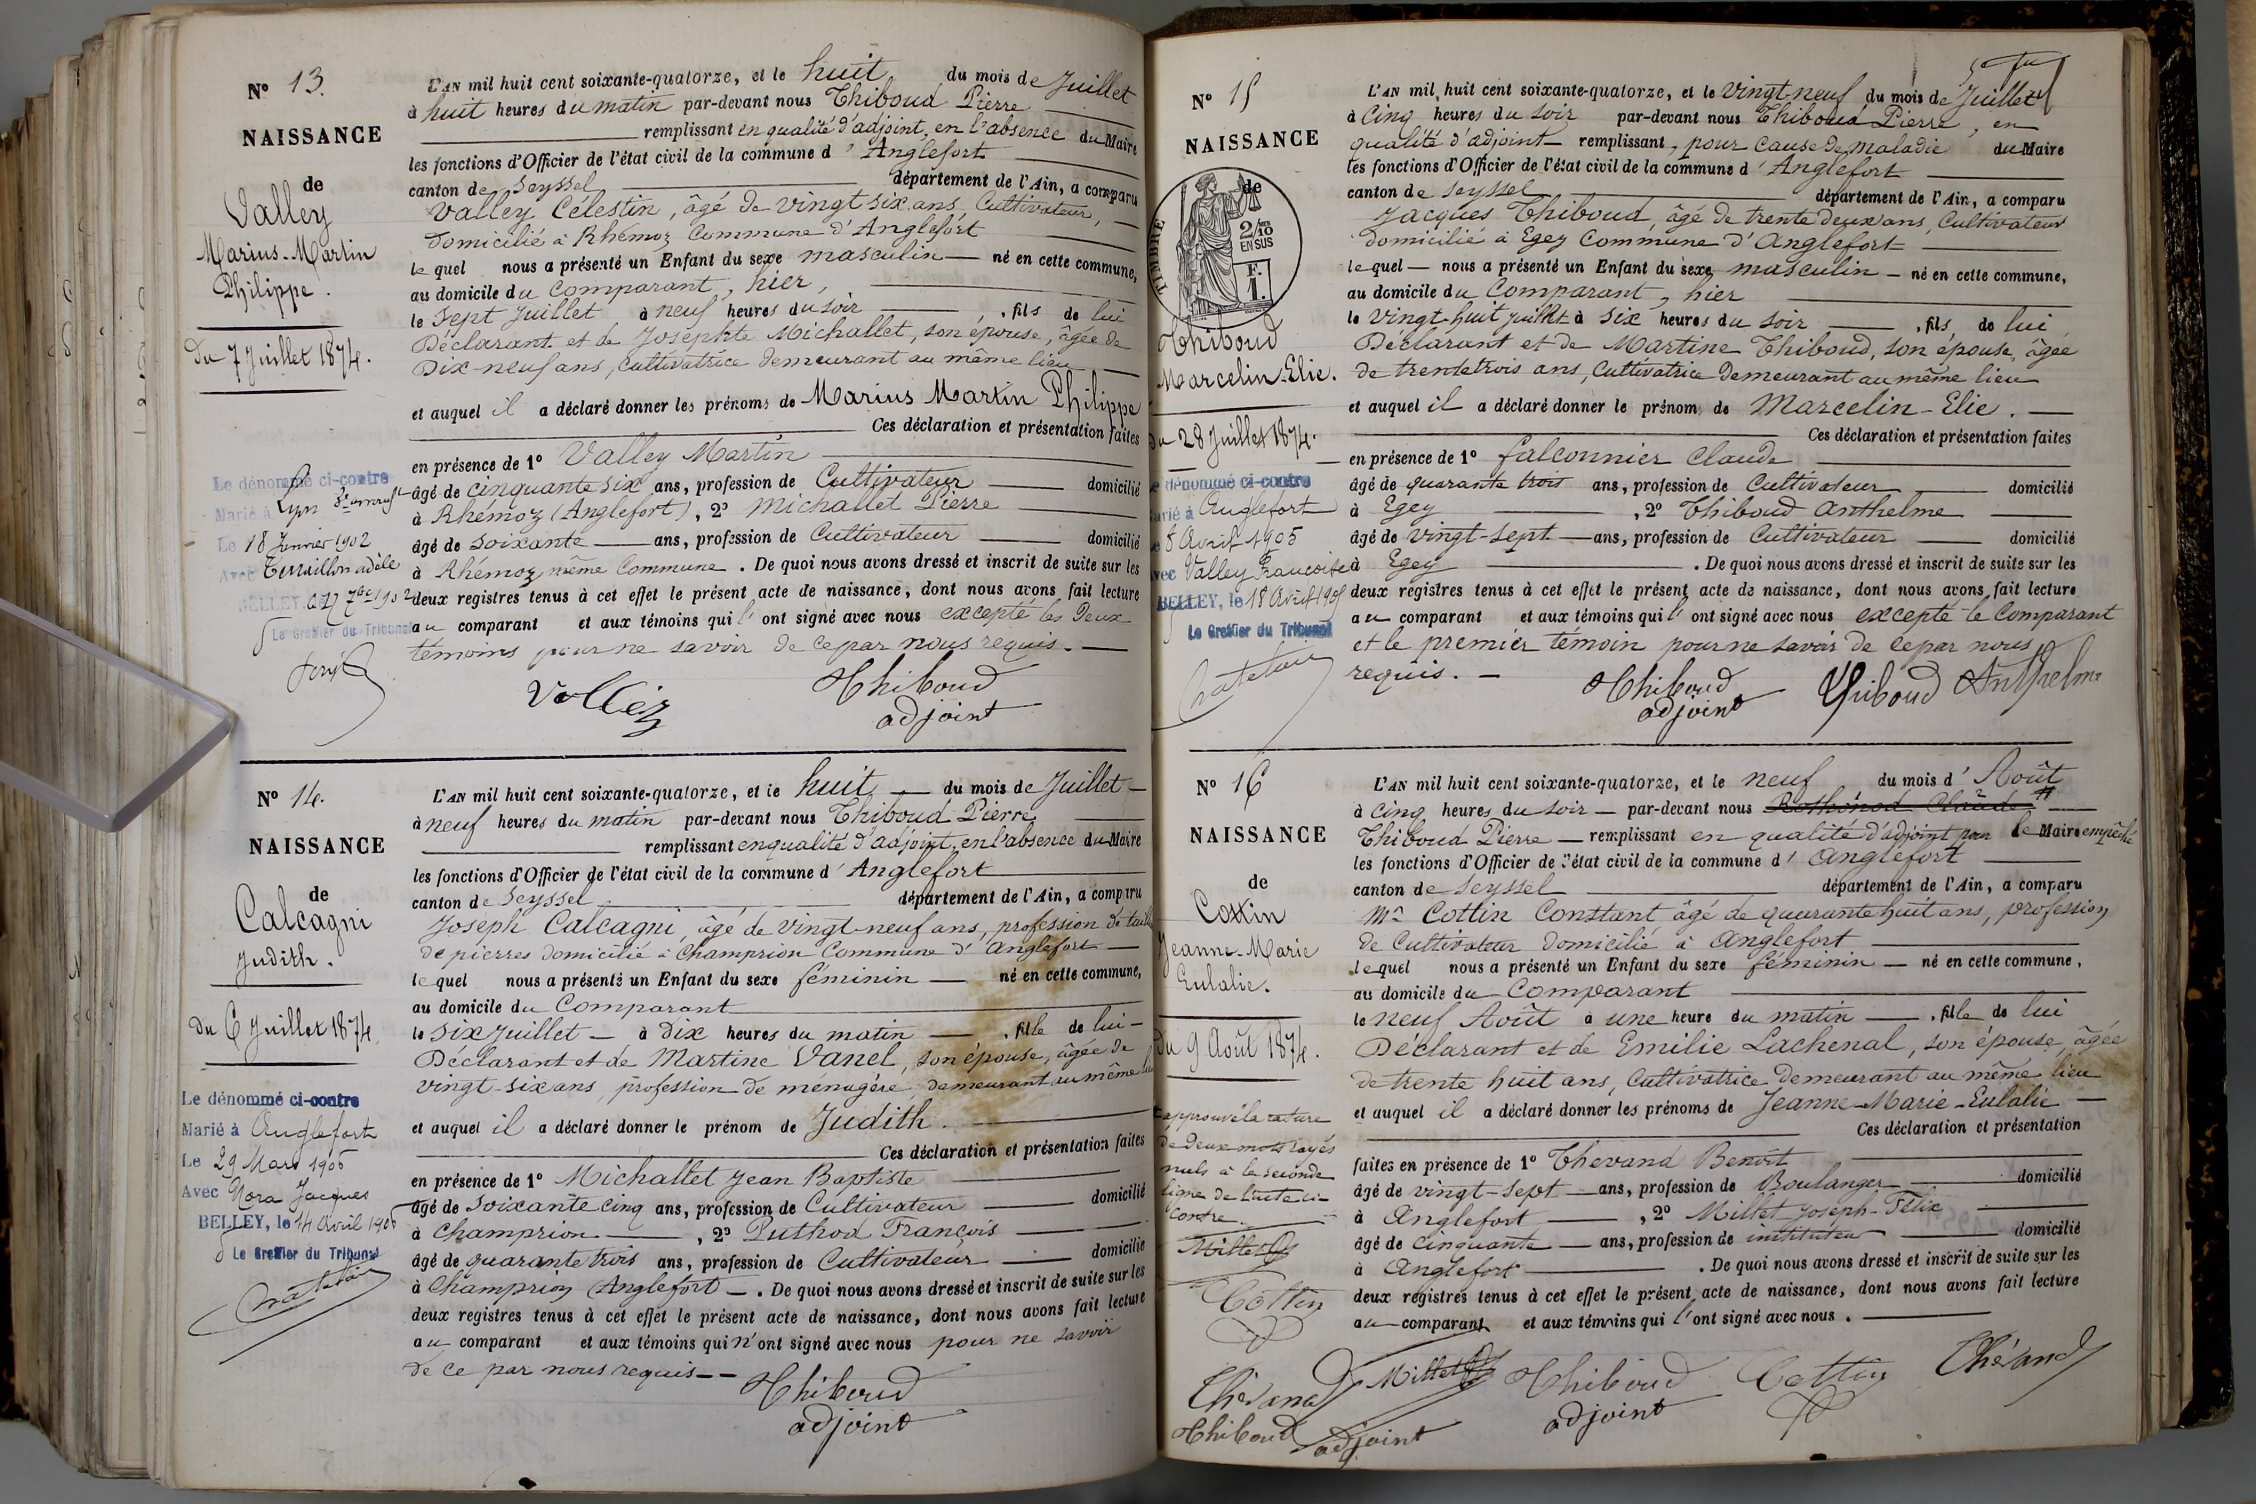 N° 13.
NAISSANCE
de
Valley
Marius-Martin
Philippe.
Du 7 Juillet 1874.
Le dénommé ci-contre
Marié à Lyon 3e arrondt
Le 18 Janvier 1902
Avec adèle
BELLEY, le 17 7bre 1902
Le Greffier du Tribunal
L'AN mil huit cent soixante-quatorze, et le huit du mois de Juillet
à huit heures du matin par-devant nous Thiboud Pierre
remplissant en qualité d'adjoint, en l'absence du Maire
les fonctions d'Officier de l'état civil de la commune d'Anglefort
canton de Seyssel département de l'Ain, a comparu
Valley Célestin, âgé de vingt six ans, Cultivateur,
Domicilié à Rhémoz Commune d'Anglefort
lequel nous a présenté un Enfant du sexe masculin né en cette commune,
au domicile du Comparant, hier,
le Sept Juillet à neuf heures du soir, fils de lui
Déclarant et de Josephte Michallet, son épouse, âgée de
Dix-neuf ans, Cultivatrice demeurant au même lieu
et auquel il a déclaré donner les prénoms de Marius Martin Philippe
Ces déclaration et présentation faites
en présence de 1° Valley Martin
âgé de cinquante six ans, profession de Cultivateur domicilié
à Rhémoz (Anglefort), 2° Michallet Pierre
âgé de soixante ans, profession de Cultivateur domicilié
à Rhémoz même Commune. De quoi nous avons dressé et inscrit de suite sur les
deux registres tenus à cet effet le présent acte de naissance, dont nous avons fait lecture
au comparant et aux témoins qui l'ont signé avec nous excepté les Deux
témoins pour ne savoir de ce par nous requis.
Valley
Thiboud
adjoint
N° 14.
NAISSANCE
de
Calcagni
Judith.
Du 6 Juillet 1874.
Le dénommé ci-contre
Marié à Anglefort
Le 29 Mars 1906
Avec Nora Jacques
BELLEY, le 14 Avril 1906
Le Greffier du Tribunal
L'AN mil huit cent soixante-quatorze, et le huit du mois de Juillet
à neuf heures du matin par-devant nous Thiboud Pierre
remplissant en qualité d'adjoint, en l'absence du Maire
les fonctions d'Officier de l'état civil de la commune d'Anglefort
canton de Seyssel département de l'Ain, a comparu
Joseph Calcagni, âgé de vingt-neuf ans, profession de
de pierres domicilié à Champrion Commune d'Anglefort
lequel nous a présenté un Enfant du sexe féminin né en cette commune,
au domicile du Comparant
le Six Juillet à dix heures du matin, fille de lui
Déclarant et de Martine Vanel, son épouse, âgée de
vingt-six ans, profession de menagère, demeurant au même
et auquel il a déclaré donner le prénom de Judith.
Ces déclaration et présentation faites
en présence de 1° Michallet Jean Baptiste
âgé de soixante cinq ans, profession de Cultivateur domicilié
à Champrion, 2° Puthod François
âgé de quarante trois ans, profession de Cultivateur domicilié
à Champrion (Anglefort). De quoi nous avons dressé et inscrit de suite sur les
deux registres tenus à cet effet le présent acte de naissance, dont nous avons fait lecture
au comparant et aux témoins qui n'ont signé avec nous pour ne savoir
de ce par nous requis
Thiboud
adjoint
N° 15
NAISSANCE
de
TIMBRE
2/10 EN SUS
F.
1.
Thiboud
Marcelin-Elie.
Du 28 Juillet 1874.
Le dénommé ci-contre
Marié à Anglefort
Le 8 Avril 1905
Avec Valley Françoise
BELLEY, le 18 Avril 1905
Le Greffier du Tribunal
L'AN mil huit cent soixante-quatorze, et le vingt neuf du mois de Juillet
à Cinq heures du soir par-devant nous Thiboud Pierre, en
qualité d'adjoint remplissant, pour cause de maladie du Maire
les fonctions d'Officier de l'état civil de la commune d'Anglefort
canton de Seyssel département de l'Ain, a comparu
Jacques Thiboud, âgé de trente deux ans, Cultivateur
domicilié à Egez Commune d'Anglefort
lequel nous a présenté un Enfant du sexe masculin né en cette commune,
au domicile du Comparant, hier
le vingt-huit juillet à six heures du soir, fils de lui
Déclarant et de Martine Thiboud, son épouse, âgée
de trente trois ans, Cultivatrice demeurant au même lieu
et auquel il a déclaré donner le prénom de Marcelin-Elie.
Ces déclaration et présentation faites
en présence de 1° falconnier Claude
âgé de quarante trois ans, profession de Cultivateur domicilié
à Egez, 2° Thiboud Anthelme
âgé de vingt-sept ans, profession de Cultivateur domicilié
à Egez. De quoi nous avons dressé et inscrit de suite sur les
deux registres tenus à cet effet le présent acte de naissance, dont nous avons fait lecture
au comparant et aux témoins qui l'ont signé avec nous excepté le Comparant
et le premier témoin pour ne savoir de ce par nous
requis.
Thiboud
adjoint
Thiboud Anthelme
N° 16
NAISSANCE
de
Cottin
Jeanne-Marie
Eulalie.
Du 9 Août 1874.
approuvé la rature
de deux mots rayés
nuls à la seconde
ligne de l'acte ci-
contre.
Millet
Cottin
Thévand
Thiboud
adjoint
L'AN mil huit cent soixante-quatorze, et le neuf du mois d'Août
à Cinq heures du soir par-devant nous Claude
Thiboud Pierre remplissant en qualité d'adjoint pour le Maire empêché
les fonctions d'Officier de l'état civil de la commune d'Anglefort
canton de Seyssel département de l'Ain, a comparu
Mr Cottin Constant âgé de quarante huit ans, profession
de Cultivateur domicilié à Anglefort
lequel nous a présenté un Enfant du sexe féminin né en cette commune,
au domicile du Comparant
le neuf Août à une heure du matin, fille de lui
Déclarant et de Emilie Lachenal, son épouse, âgée
de trente huit ans, Cultivatrice demeurant au même lieu
et auquel il a déclaré donner les prénoms de Jeanne-Marie-Eulalie
Ces déclaration et présentation
faites en présence de 1° Thevand Benoit
âgé de vingt-sept ans, profession de Boulanger domicilié
à Anglefort, 2° Millet Joseph-Félix
âgé de cinquante ans, profession de instituteur domicilié
à Anglefort. De quoi nous avons dressé et inscrit de suite sur les
deux registres tenus à cet effet le présent acte de naissance, dont nous avons fait lecture
au comparant et aux témoins qui l'ont signé avec nous.
Millet
Thiboud
adjoint
Cottin
Thévand